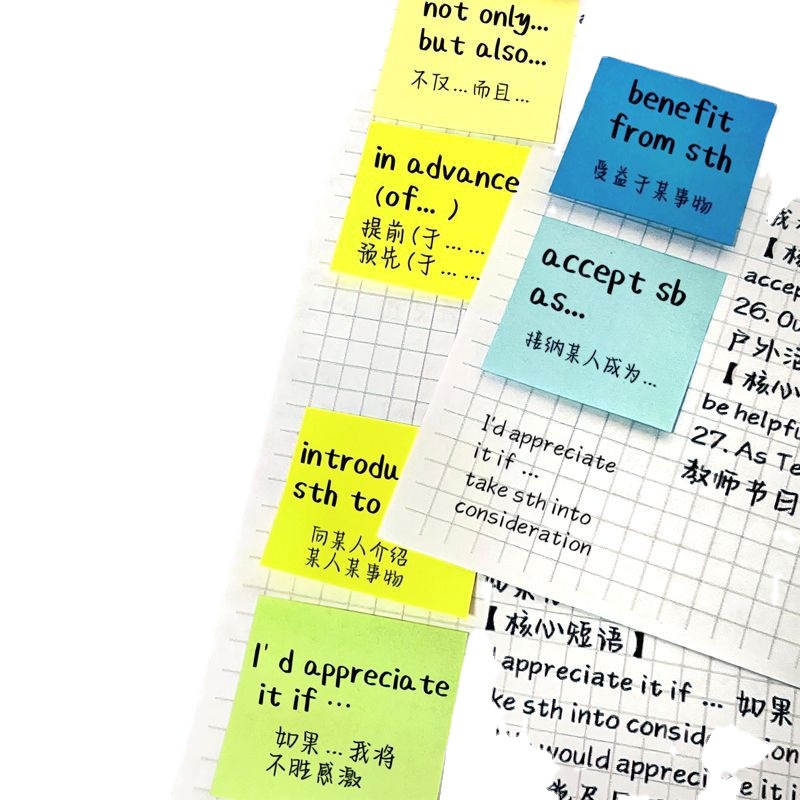 not only...
but also...
不仅...而且...
in advance
(of... )
提前(于... ...
预先(于... ...
introdu
sth to
向某人介绍
某人某事物
I'd appreciate
it if ...
如果...我将
不胜感激
benefit
from sth
受益于某事物
accept sb
as...
接纳某人成为...
I'd appreciate
it if ...
take sth into
consideration
【核
accep
26. Ou
户外活
【核心
be helpfu
27. As Te
教师节日
【核心短语】
appreciate it if ... 如果
ke sth into consid
would appreci e it i